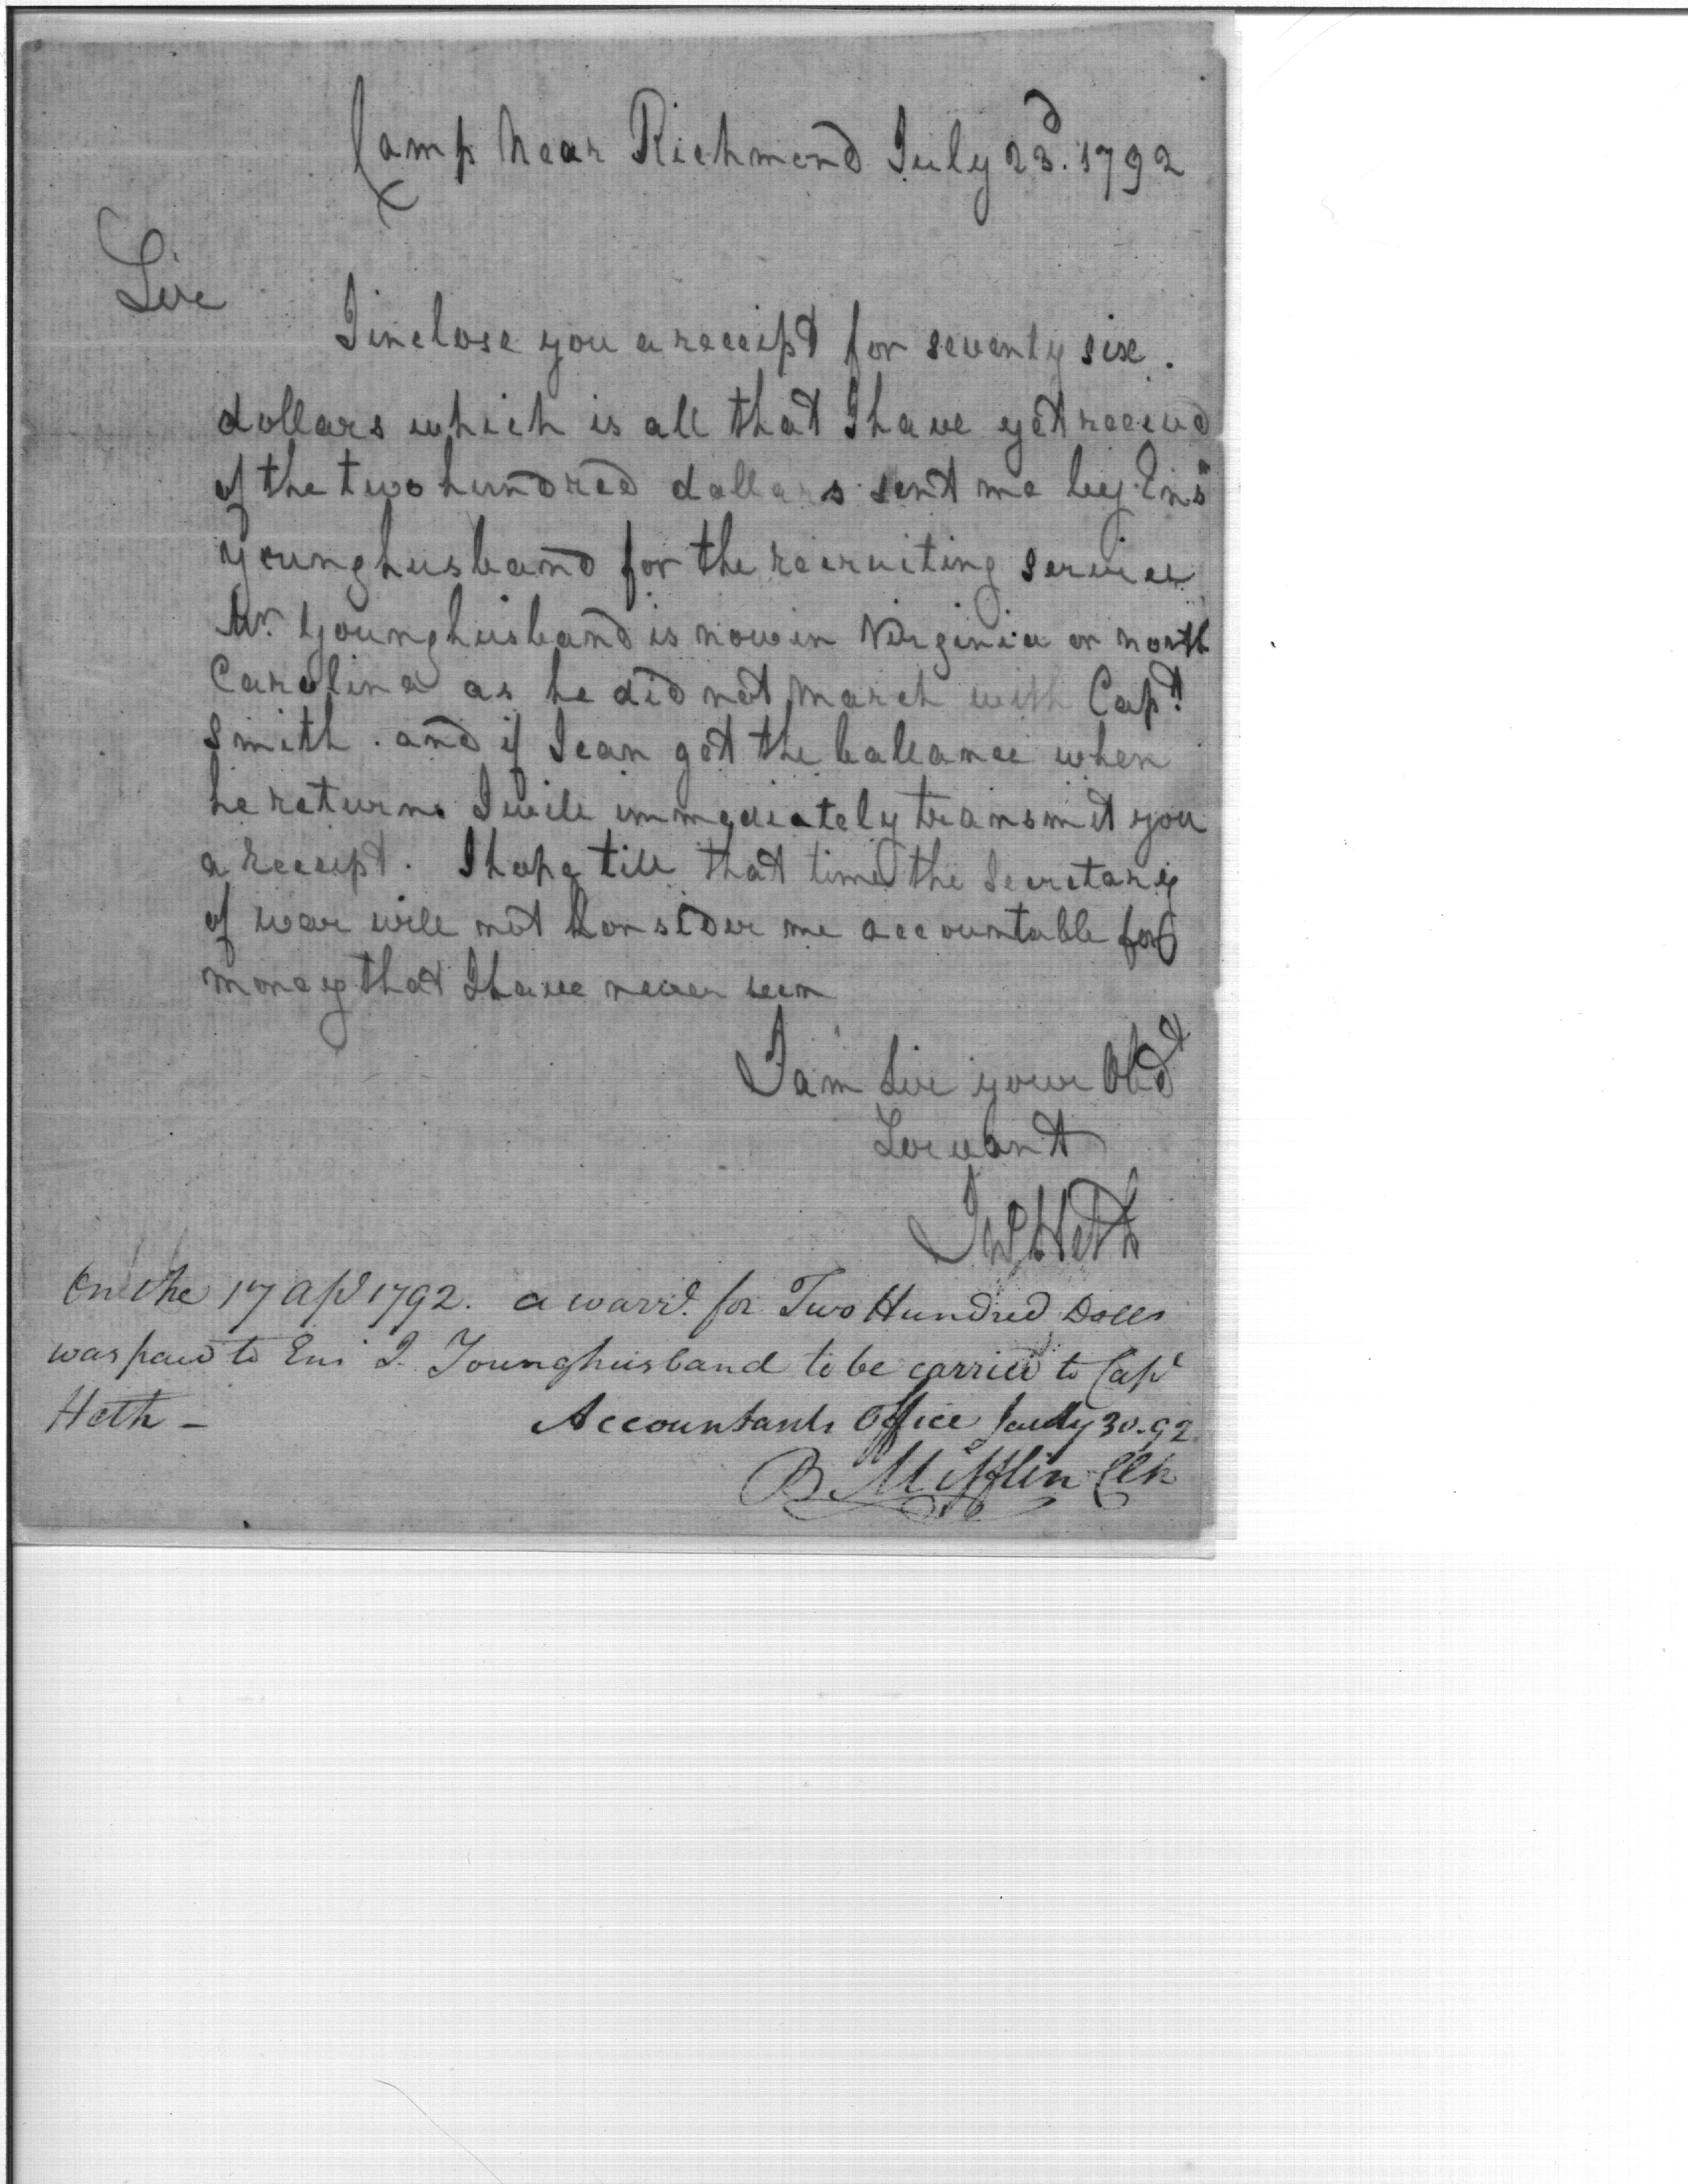 Camp Near Richmond July 23d. 1792
Sir
I inclose you a receipt for seventy six.
dollars which is all that I have yet receivd
of the two hundred dollars sent me by Ensn
Younghusband for the recruiting service
Mr. Younghusband is now in Virginia or North
Carolina as he did not March with Capt.
Smith. and if I can get the ballance when
he returns I will immediately transmit you
a receipt. I hope till that time the Secretary
of war will not Consider me accountable for
money that I have never seen
I am Sir your Obdt
Servant
Heth
On the 17 Apl 1792. a warrt. for Two Hundred Dolls
was paid to Ens J. Younghusband to be carried to Capt
Heth —
Accountants Office July 30. 92
B. Mifflin Clk